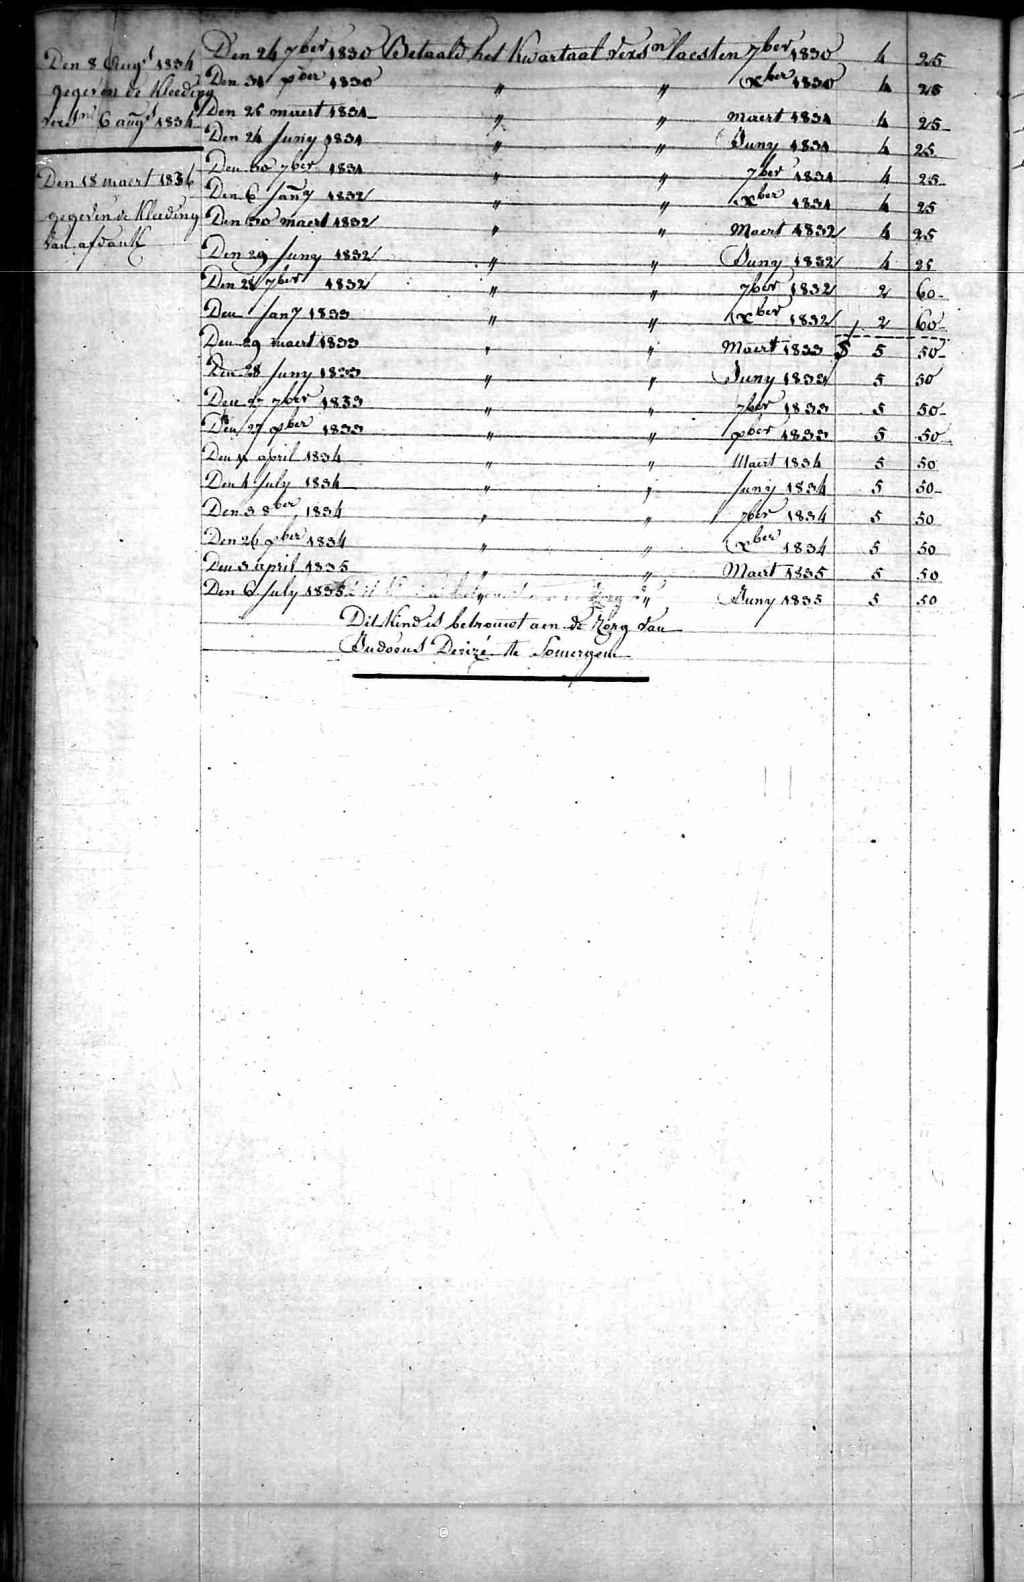 Den 8 Augt 1834
gegeven de Kleeding
6 augt 1834
Den 18 maert 1836
gegeven de Kleeding
van afdank
Den 24 7ber 1830 Betaald het Kwartaal versn laesten 7ber 1830 4 25
Den 31 xber 1830 " " xber 1830 4 25
Den 26 maert 1831 " " maert 1831 4 25
Den 24 Juny 1831 " " Juny 1831 4 25
Den 30 7ber 1831 " " 7ber 1831 4 25
Den 6 Jany 1832 " " xber 1831 4 25
Den 30 maert 1832 " " Maert 1832 4 25
Den 29 Juny 1832 " " Juny 1832 4 25
Den 28 7ber 1832 " " 7ber 1832 2 60
Den Jany 1833 " " xber 1832 2 60
Den 29 maert 1833 " " Maert 1833 5 50
Den 28 Juny 1833 " " Juny 1833 5 50
Den 27 7ber 1833 " " 7ber 1833 5 50
Den 27 xber 1833 " " xber 1833 5 50
Den april 1834 " " Maert 1834 5 50
Den 4 July 1834 " " Juny 1834 5 50
Den 3 8ber 1834 " " 7ber 1834 5 50
Den 26 xber 1834 " " xber 1834 5 50
Den 3 april 1835 " " Maert 1835 5 50
Den 6 July 1835 " " Juny 1835 5 50
Dit Kind is betrouwt aen de Zorg van
Desiré te Somergem